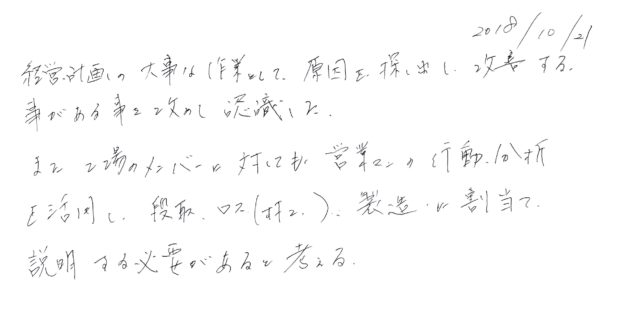 2018/10/21
経営計画の大事な作業として、原因を探し出し、改善する
事がある事を改めて認識した。
また工場のメンバーに対しても営業マンの行動分析
を活用し、段取、ロス(手直し)、製造、に割当て、
説明する必要があると考える。